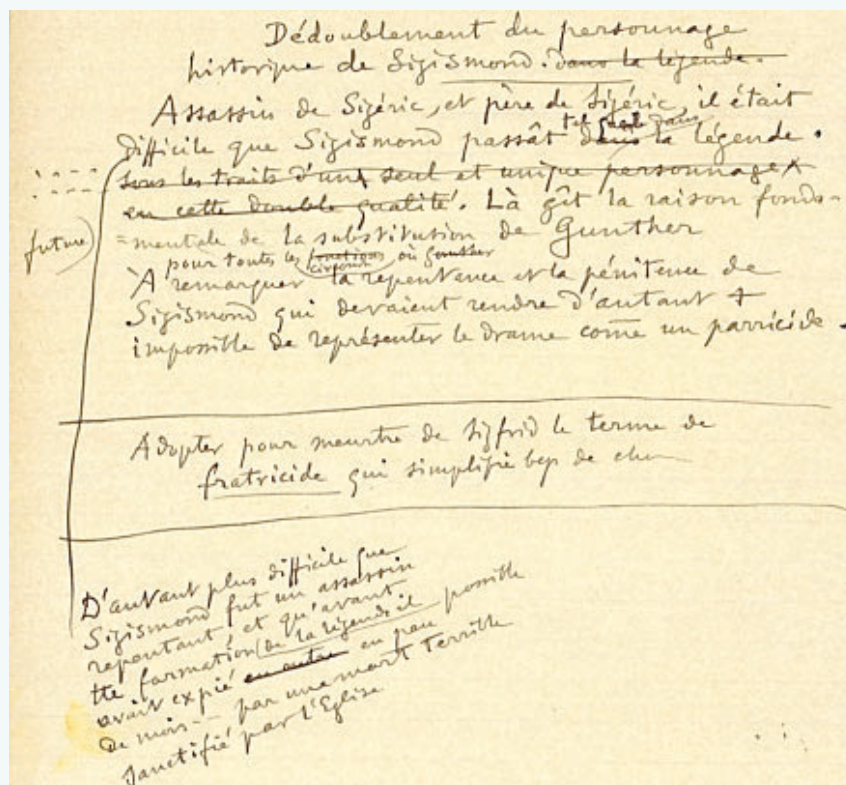 Dédoublement du personnage
historique de Sigismond. dans la légende.
Assassin de Sigéric, et père de Sigéric, il était
difficile que Sigismond passât tel quel dans la légende.
sous les traits d'un seul et unique personnage
en cette double qualité. Là gît la raison fonda-
=mentale de la substitution de Gunther
pour toutes les fonctions où Gunther
circonst
A remarquer la repentence et la pénitence de
Sigismond qui devaient rendre d'autant +
impossible de représenter le drame come un parricide.
future
Adopter pour meurtre de Sigfrid le terme de
fratricide qui simplifie bcp de choses
D'autant plus difficile que
Sigismond fut un assassin
repentant et qu'avant
tte formation de la légende il
avait expié en outre en peu possible
de mois - par une mort terrible
sanctifié par l'Eglise